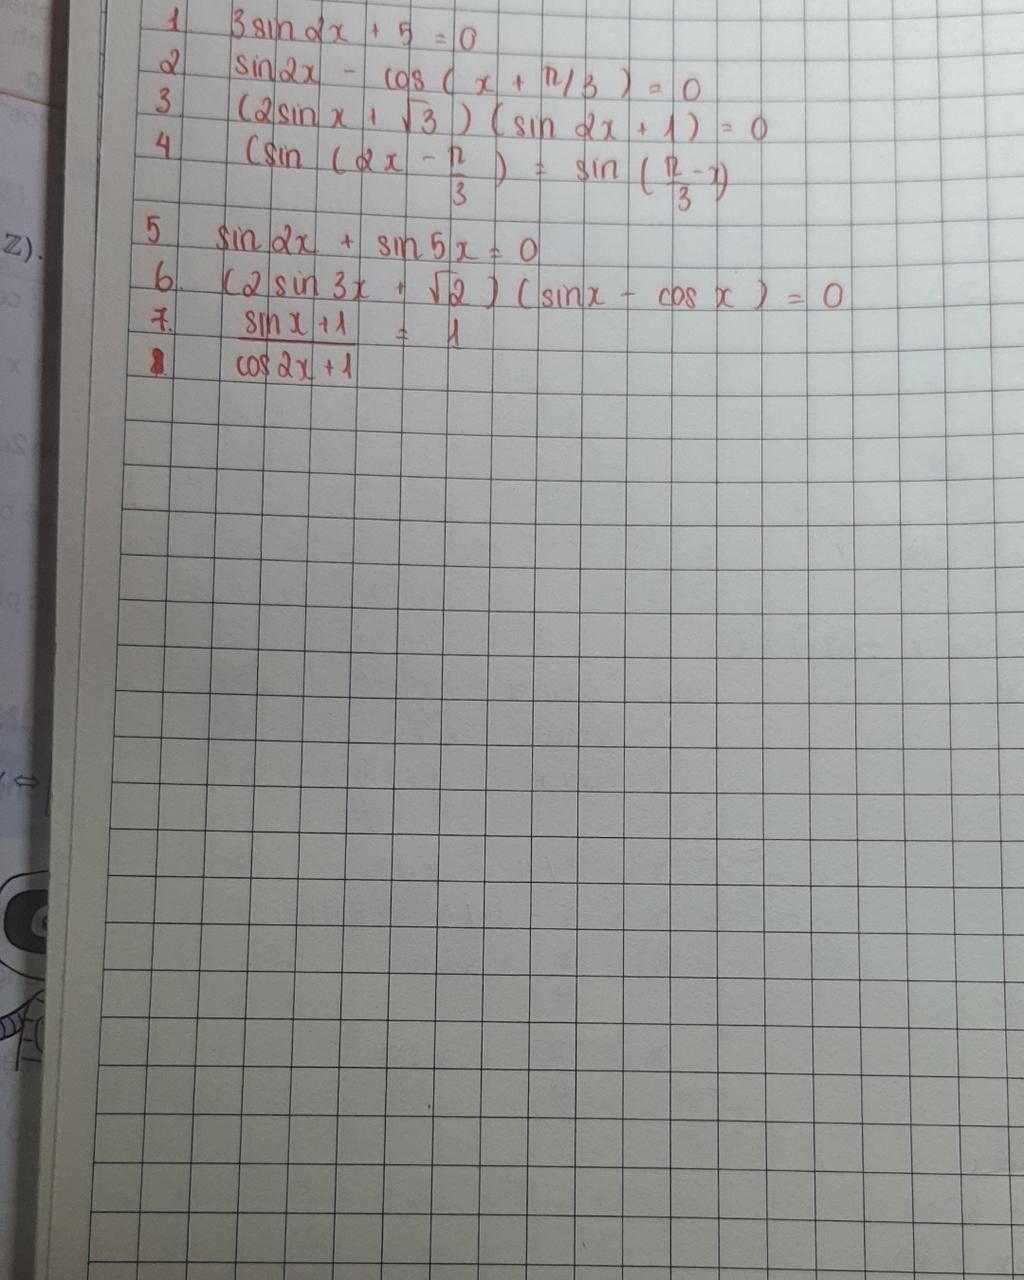 1. 3 sin 2x + 5 = 0
2 sin 2x - cos ( x + π/3 ) = 0
3 (2 sin x + √3 ) ( sin 2x + 1 ) = 0
4 (sin ( 2x - π/3 ) = sin ( π/3 - x)
5 sin 2x + sin 5x = 0
Z).
6. (2 sin 3x + √2 ) ( sin x - cos x ) = 0
7. sin x + 1 / cos 2x + 1 = 1
⇔